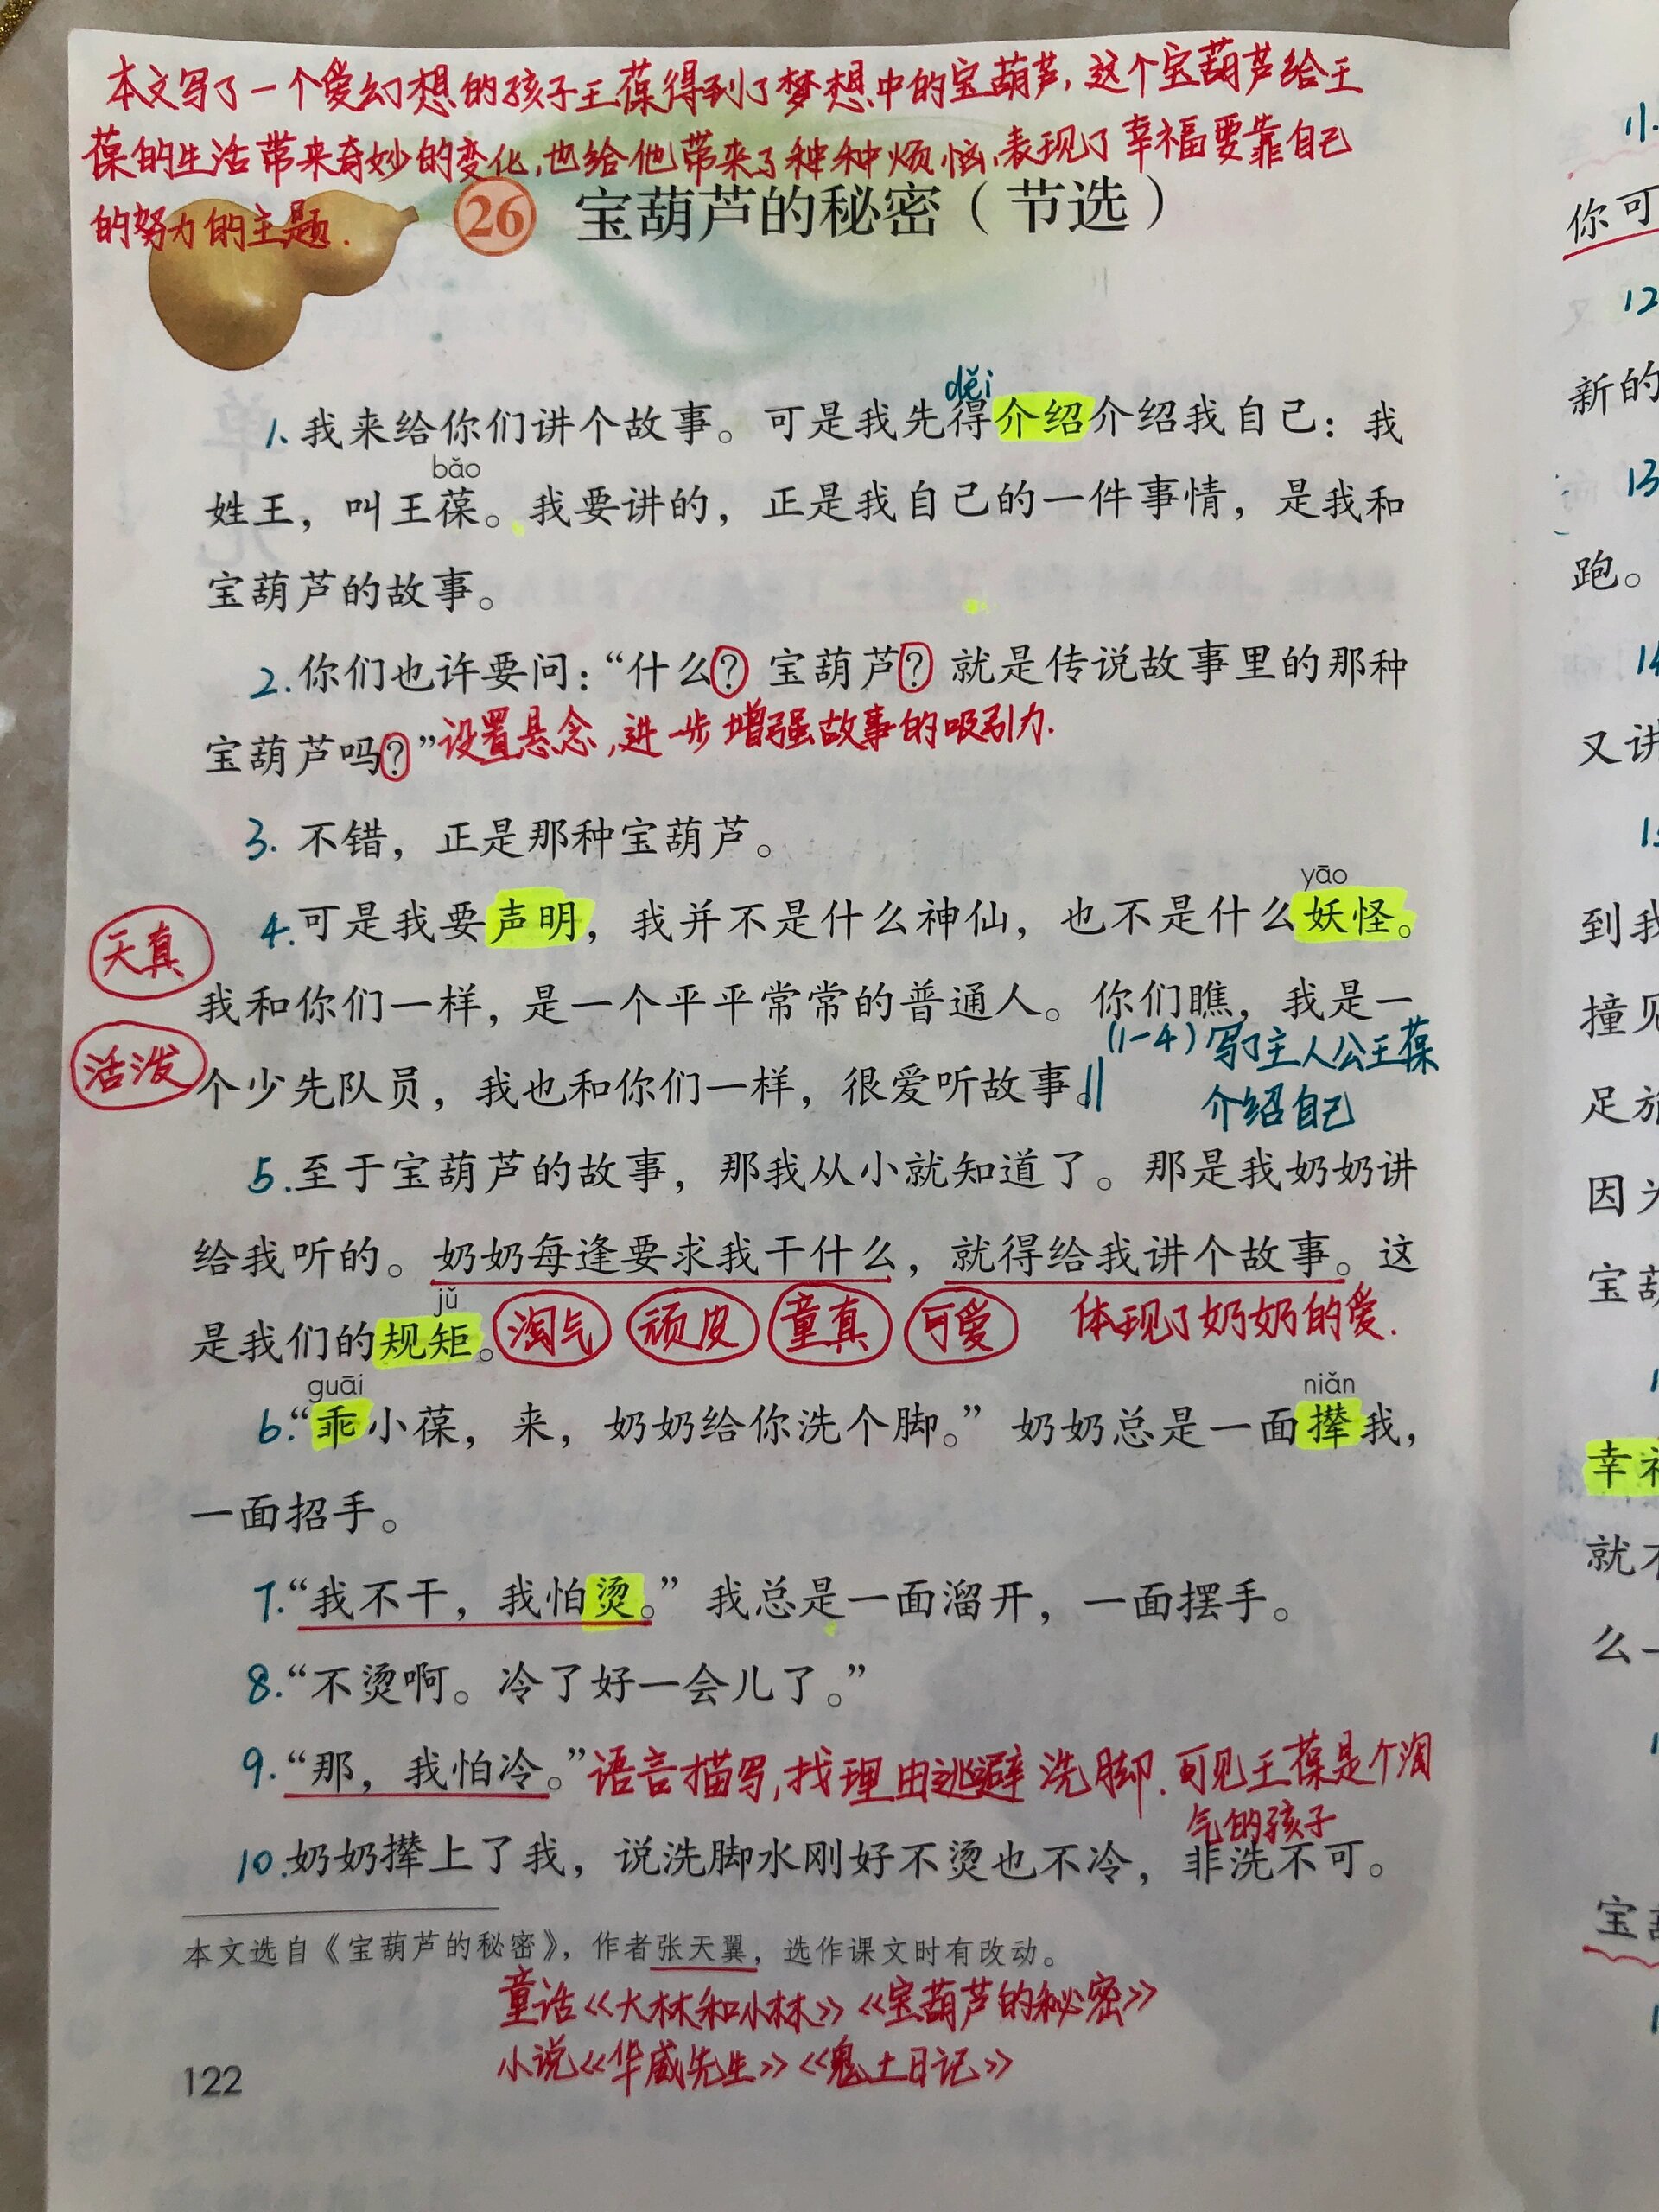 本文写了一个爱幻想的孩子王葆得到了梦想中的宝葫芦,这个宝葫芦给王
葆的生活带来奇妙的变化,也给他带来了种种烦恼,表现了幸福要靠自己
的努力的主题.
26 宝葫芦的秘密（节选）
děi
1.我来给你们讲个故事。可是我先得介绍介绍我自己：我
bǎo
姓王，叫王葆。我要讲的，正是我自己的一件事情，是我和
宝葫芦的故事。
2.你们也许要问：“什么？宝葫芦？就是传说故事里的那种
宝葫芦吗？”设置悬念,进一步增强故事的吸引力.
3.不错，正是那种宝葫芦。
yāo
4.可是我要声明，我并不是什么神仙，也不是什么妖怪。
天真
我和你们一样，是一个平平常常的普通人。你们瞧，我是一
(1-4)写了主人公王葆
活泼
个少先队员，我也和你们一样，很爱听故事。||
介绍自己
5.至于宝葫芦的故事，那我从小就知道了。那是我奶奶讲
给我听的。奶奶每逢要求我干什么，就得给我讲个故事。这
jǔ
是我们的规矩。淘气 顽皮 童真 可爱 体现了奶奶的爱.
guāi niǎn
6.“乖小葆，来，奶奶给你洗个脚。”奶奶总是一面撵我，
一面招手。
7.“我不干，我怕烫。”我总是一面溜开，一面摆手。
8.“不烫啊。冷了好一会儿了。”
9.“那，我怕冷。”语言描写,找理由逃避洗脚.可见王葆是个淘
气的孩子
10.奶奶撵上了我，说洗脚水刚好不烫也不冷，非洗不可。
本文选自《宝葫芦的秘密》，作者张天翼，选作课文时有改动。
童话《大林和小林》《宝葫芦的秘密》
小说《华威先生》《鬼土日记》
122
11.
你可
12
新的
13
跑。
14
又讲
到我
撞见
足旅
因为
宝葫
幸福
就不
么一
宝葫